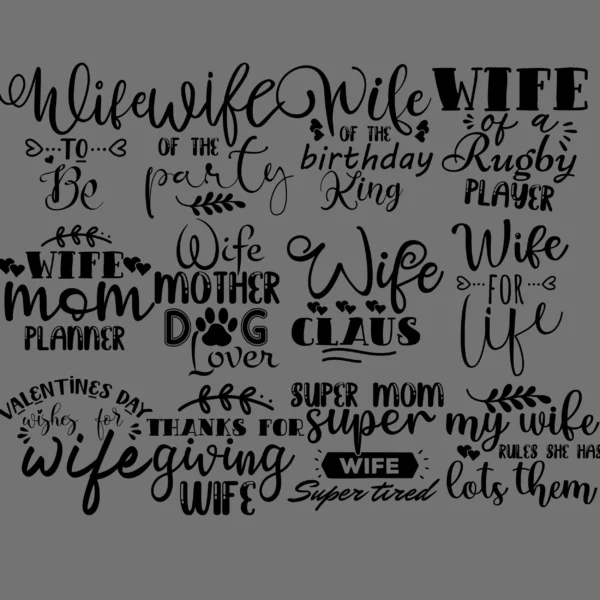 Wife
TO
Be
wife
OF THE
party
Wife
OF THE
birthday
King
WIFE
of a
Rugby
PLAYER
WIFE
mom
PLANNER
Wife
MOTHER
DOG
Lover
Wife
CLAUS
Wife
FOR
life
VALENTINES DAY
wishes for
wife
THANKS FOR
giving
WIFE
SUPER MOM
super
WIFE
Super tired
my wife
RULES SHE HAS
lots them